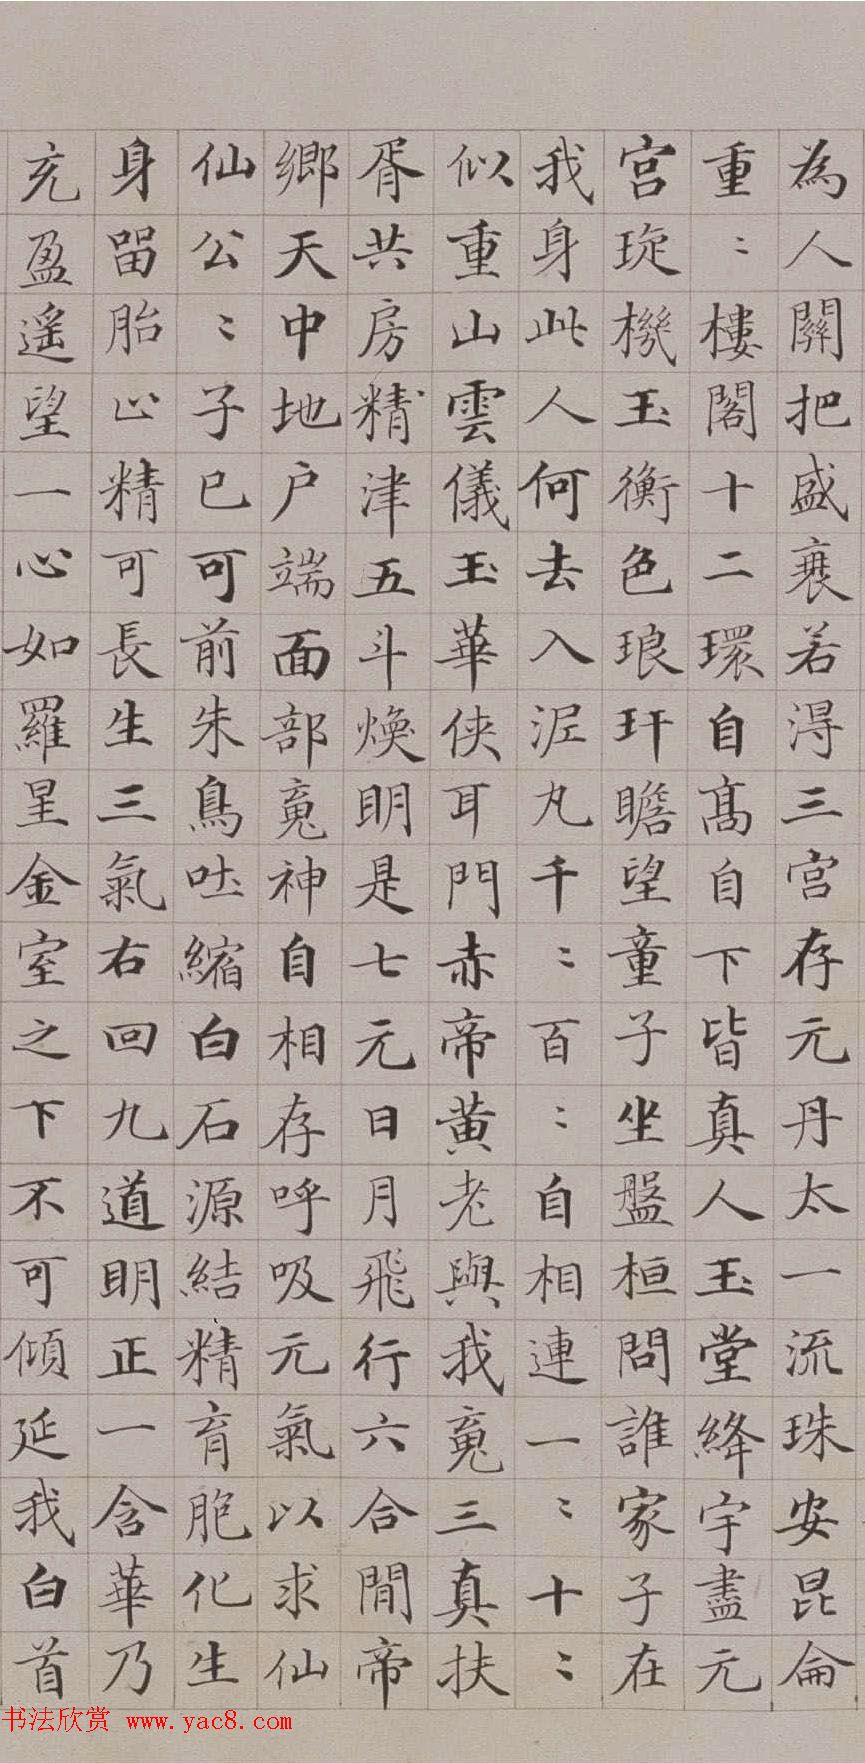 為人關把盛衰若淂三宮存元丹太一流珠安昆侖
重〻樓閣十二環自髙自下皆真人玉堂絳宇盡元
宮琁機玉衡色琅玕瞻望童子坐盤桓問誰家子在
我身此人何去入泥丸千〻百〻自相連一〻十〻
似重山雲儀玉華侠耳門赤帝黃老與我䰟三真扶
胥共房精津五斗煥明是七元日月飛行六合間帝
鄉天中地户端面部䰟神自相存呼吸元氣以求仙
仙公〻子已可前朱鳥吐縮白石源結精育胞化生
身留胎止精可長生三氣右回九道明正一含華乃
充盈遥望一心如羅星金室之下不可傾延我白首
书法欣赏 www.yac8.com